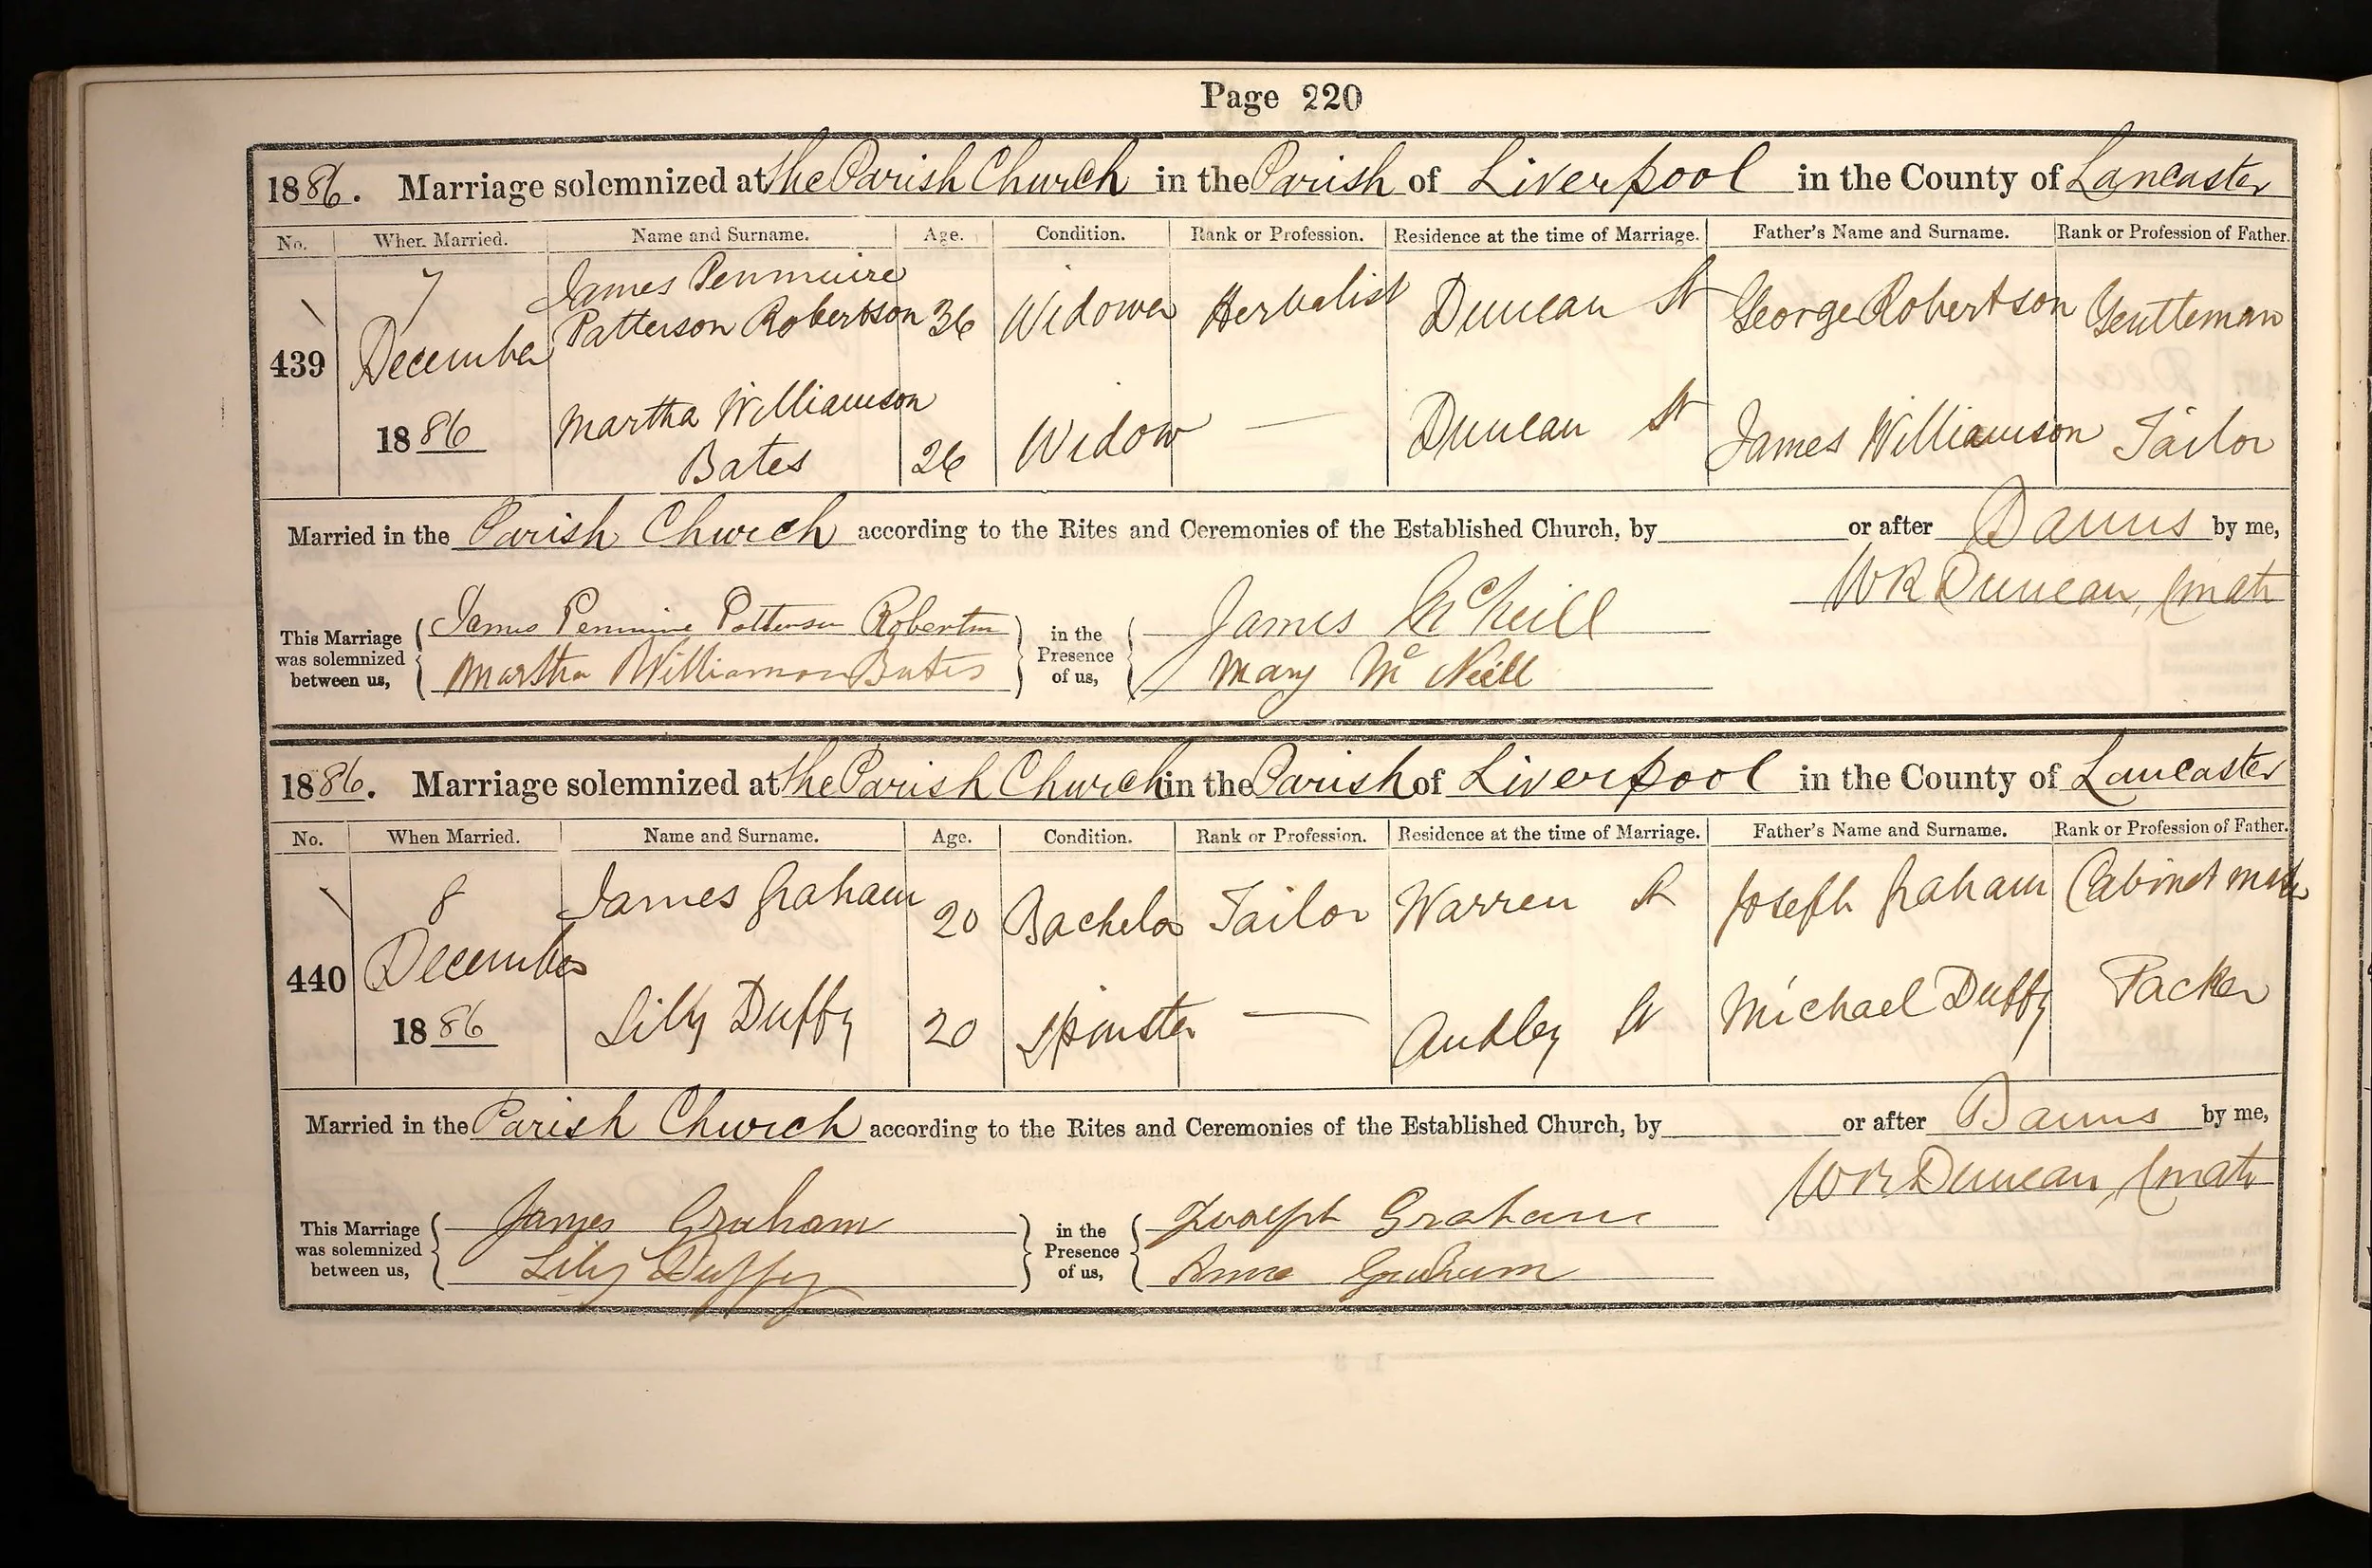 Page 220
1886. Marriage solemnized at the Parish Church in the Parish of Liverpool in the County of Lancaster
No. When Married. Name and Surname. Age. Condition. Rank or Profession. Residence at the time of Marriage. Father's Name and Surname. Rank or Profession of Father.
439 7 December 1886 James Penmuire Patterson Robertson 36 Widower Herbalist Duncan St George Robertson Gentleman
Martha Williamson Bates 26 Widow — Duncan St James Williamson Tailor
Married in the Parish Church according to the Rites and Ceremonies of the Established Church, by or after Banns by me,
W R Duncan,
This Marriage was solemnized between us, James Penmuire Patterson Robertson Martha Williamson Bates in the Presence of us, James McNeill Mary McNeill
1886. Marriage solemnized at the Parish Church in the Parish of Liverpool in the County of Lancaster
No. When Married. Name and Surname. Age. Condition. Rank or Profession. Residence at the time of Marriage. Father's Name and Surname. Rank or Profession of Father.
440 8 December 1886 James Graham 20 Bachelor Tailor Warren St Joseph Graham Cabinet maker
Lilly Duffy 20 Spinster — Audley St Michael Duffy Packer
Married in the Parish Church according to the Rites and Ceremonies of the Established Church, by or after Banns by me,
W R Duncan,
This Marriage was solemnized between us, James Graham Lily Duffy in the Presence of us, Joseph Graham Anne Graham